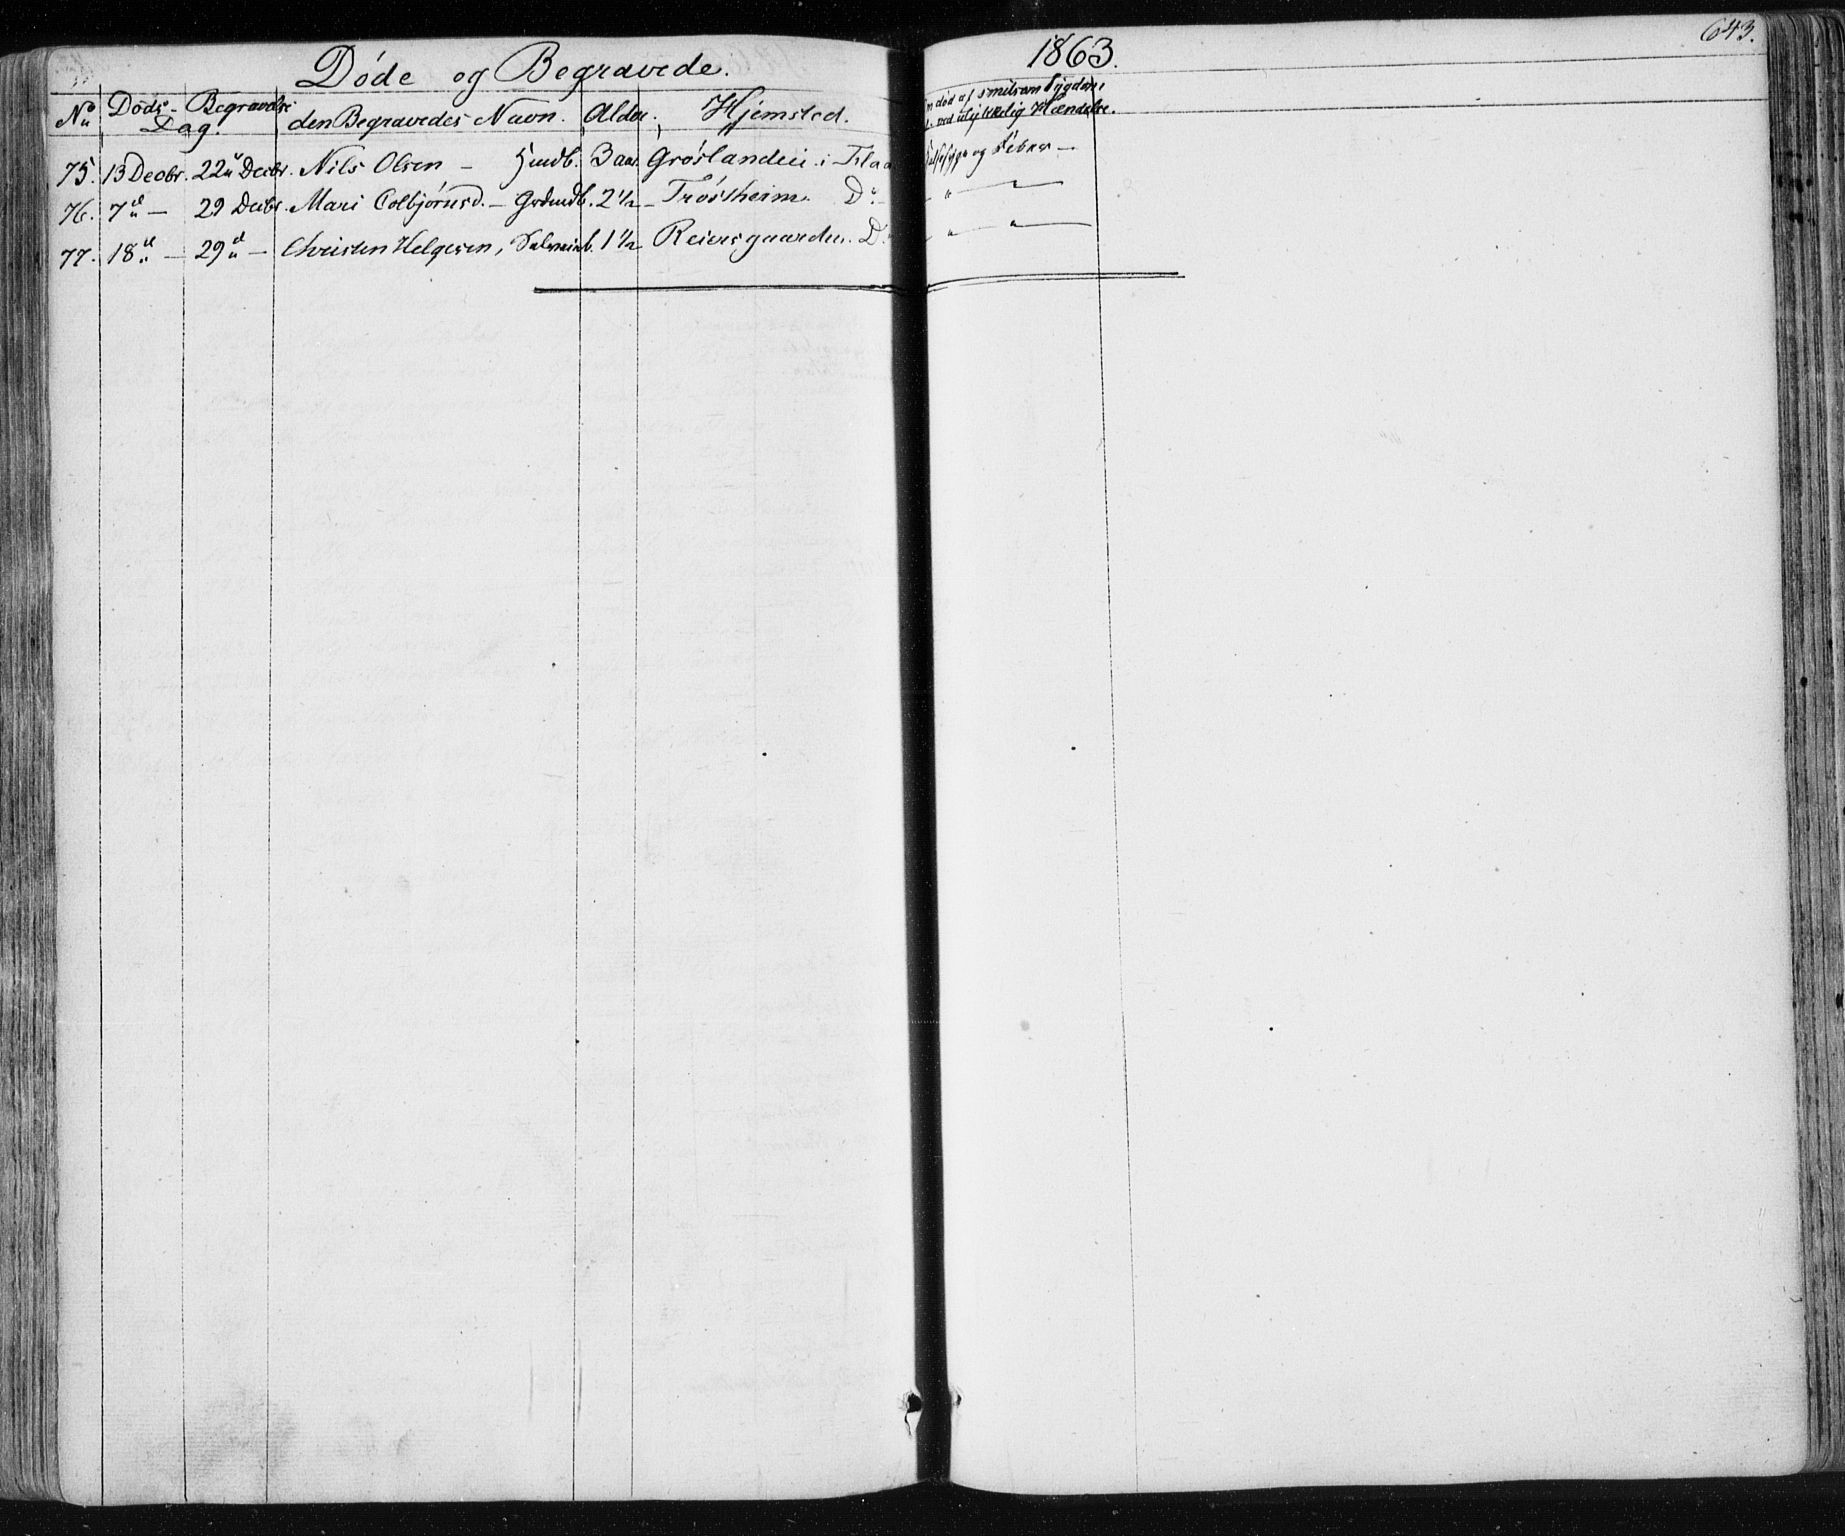 Døde og Begravede. 1863. 643.
No Døds- Begravelse den Begravedes Navn. Alder. Hjemsted. død af smitsom Sygdom
Dag. ved ulykkelig Hændelse.
75. 13 Decbr. 22 Decbr. Nils Olsen - 3 aar Grøslandeie i Flaa og Feber —
76. 7d — 29 Decbr. Mari Colbjørnsd. — 2 1/2 — Trøstheim. Do - " —
77. 18d — 29d — Christen Helgesen, 1 1/2 Reiersgaarden. Do - " — " —